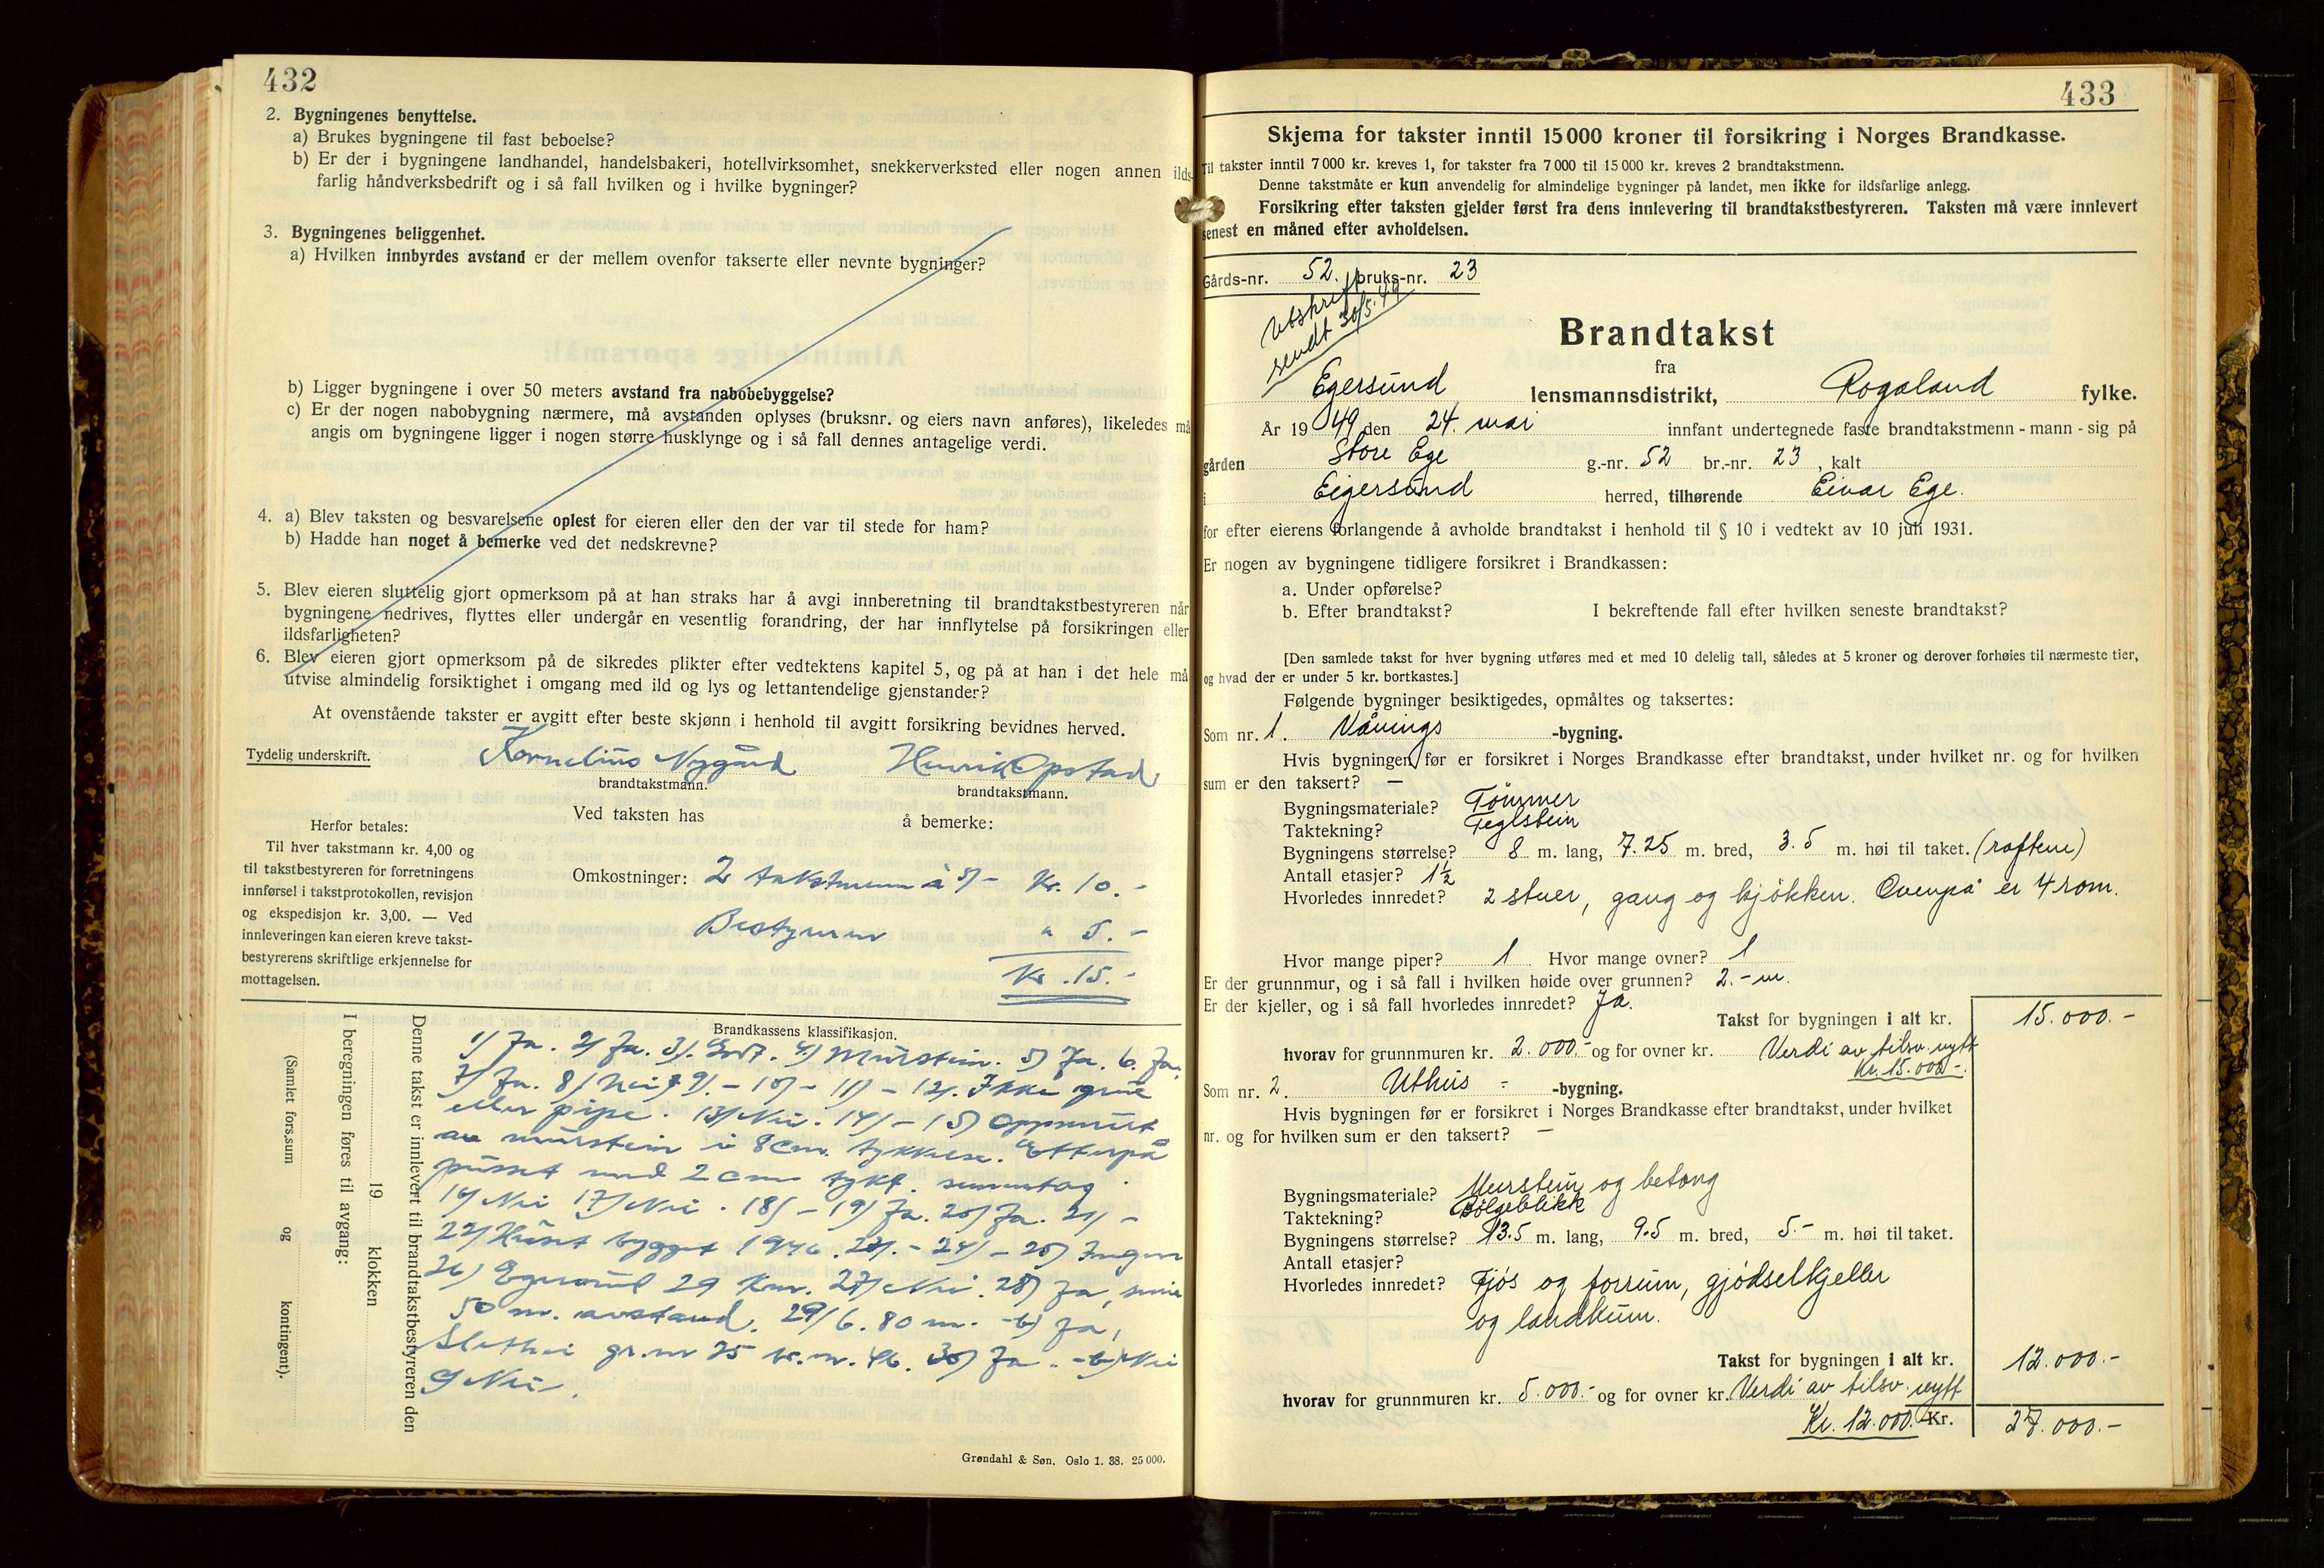 432
2. Bygningenes benyttelse.
a) Brukes bygningene til fast beboelse?
b) Er der i bygningene landhandel, handelsbakeri, hotellvirksomhet, snekkerverksted eller nogen annen ilds-
farlig håndverksbedrift og i så fall hvilken og i hvilke bygninger?
3. Bygningenes beliggenhet.
a) Hvilken innbyrdes avstand er der mellem ovenfor takserte eller nevnte bygninger?
b) Ligger bygningene i over 50 meters avstand fra nabobebyggelse?
c) Er der nogen nabobygning nærmere, må avstanden oplyses (bruksnr. og eiers navn anføres), likeledes må
angis om bygningene ligger i nogen større husklynge og i så fall dennes antagelige verdi.
4. a) Blev taksten og besvarelsene oplest for eieren eller den der var til stede for ham?
b) Hadde han noget å bemerke ved det nedskrevne?
5. Blev eieren sluttelig gjort opmerksom på at han straks har å avgi innberetning til brandtakstbestyreren når
bygningene nedrives, flyttes eller undergår en vesentlig forandring, der har innflytelse på forsikringen eller
ildsfarligheten?
6. Blev eieren gjort opmerksom på de sikredes plikter efter vedtektens kapitel 5, og på at han i det hele må
utvise almindelig forsiktighet i omgang med ild og lys og lettantendelige gjenstander?
At ovenstående takster er avgitt efter beste skjønn i henhold til avgitt forsikring bevidnes herved.
Tydelig underskrift. Kornelius Nygård Henrik Opstad
brandtakstmann. brandtakstmann.
Ved taksten has å bemerke:
Herfor betales:
Til hver takstmann kr. 4,00 og
til takstbestyreren for forretningens
innførsel i takstprotokollen, revisjon
og ekspedisjon kr. 3,00. — Ved
innleveringen kan eieren kreve takst-
bestyrerens skriftlige erkjennelse for
mottagelsen.
Omkostninger: 2 takstmenn á 5/- Kr. 10.-
Bestyreren " 5.-
Kr. 15.-
Brandkassens klassifikasjon.
1/ Ja. 2/ Ja. 3/. Godt. 4/ Murstein. 5/ Ja. 6. Ja.
7/ Ja. 8/ Nei 9/. - 10/ - 11/ - 12/. Ikke grue
eller pipe. 13/ Nei. 14/ - 15/ Oppmurt
av murstein i 8 cm. tykkelse. Etterpå
pusset med 2 cm tykt
16/ Nei 17/ Nei. 18/ - 19/ Ja. 20/ Ja. 21/ -
22/ Huset bygget 1946. 23/. - 24/ - 25/ Ingen
26/ Egersund 29 Km. 27/ Nei. 28/ Ja,
50 m. avstand. 29/ 6. 80 m. - b/ Ja,
Slethei gr.nr 25 br.nr. 46. 30/ Ja. - b/ Nei
9 Nei.
Denne takst er innlevert til brandtakstbestyreren den
19 klokken
I beregningen føres til avgang:
(Samlet fors.sum og kontingent).
Grøndahl & Søn. Oslo 1. 38. 25 000.
433
Skjema for takster inntil 15 000 kroner til forsikring i Norges Brandkasse.
Til takster inntil 7 000 kr. kreves 1, for takster fra 7 000 til 15 000 kr. kreves 2 brandtakstmenn.
Denne takstmåte er kun anvendelig for almindelige bygninger på landet, men ikke for ildsfarlige anlegg.
Forsikring efter taksten gjelder først fra dens innlevering til brandtakstbestyreren. Taksten må være innlevert
senest en måned efter avholdelsen.
Gårds-nr. 52. bruks-nr. 23
Utskrift
sendt 30/5.49
Brandtakst
fra
Egersund lensmannsdistrikt, Rogaland fylke.
År 1949 den 24. mai innfant undertegnede faste brandtakstmenn - mann - sig på
gården Store Ege g.-nr. 52 br.-nr. 23, kalt
i Eigersund herred, tilhørende Einar Ege.
for efter eierens forlangende å avholde brandtakst i henhold til § 10 i vedtekt av 10 juli 1931.
Er nogen av bygningene tidligere forsikret i Brandkassen:
a. Under opførelse?
b. Efter brandtakst? I bekreftende fall efter hvilken seneste brandtakst?
[Den samlede takst for hver bygning utføres med et med 10 delelig tall, således at 5 kroner og derover forhøies til nærmeste tier,
og hvad der er under 5 kr. bortkastes.]
Følgende bygninger besiktigedes, opmåltes og taksertes:
Som nr. 1. Vånings -bygning.
Hvis bygningen før er forsikret i Norges Brandkasse efter brandtakst, under hvilket nr. og for hvilken
sum er den taksert? —
Bygningsmateriale? Tömmer
Taktekning? Teglstein
Bygningens størrelse? 8 m. lang, 7.25 m. bred, 3.5 m. høi til taket. (raftene)
Antall etasjer? 1½
Hvorledes innredet? 2 stuer, gang og kjökken. Ovenpå er 4 rom.
Hvor mange piper? 1 Hvor mange ovner? 1
Er der grunnmur, og i så fall i hvilken høide over grunnen? 2.- m.
Er der kjeller, og i så fall hvorledes innredet? Ja.
Takst for bygningen i alt kr. 15.000.-
hvorav for grunnmuren kr. 2.000.- og for ovner kr. Verdi av tilsv. nytt
Kr. 15.000.-
Som nr. 2. Uthus -bygning.
Hvis bygningen før er forsikret i Norges Brandkasse efter brandtakst, under hvilket
nr. og for hvilken sum er den taksert? —
Bygningsmateriale? Murstein og betong
Taktekning? Bölgeblikk
Bygningens størrelse? 13.5 m. lang, 9.5 m. bred, 5.- m. høi til taket.
Antall etasjer?
Hvorledes innredet? Fjös og forrum, gjödselkjeller
og landkum.
Takst for bygningen i alt kr. 12.000.-
hvorav for grunnmuren kr. 5.000.- og for ovner kr. Verdi av tilsv. nytt
Kr. 12.000.- Kr. 27.000.-